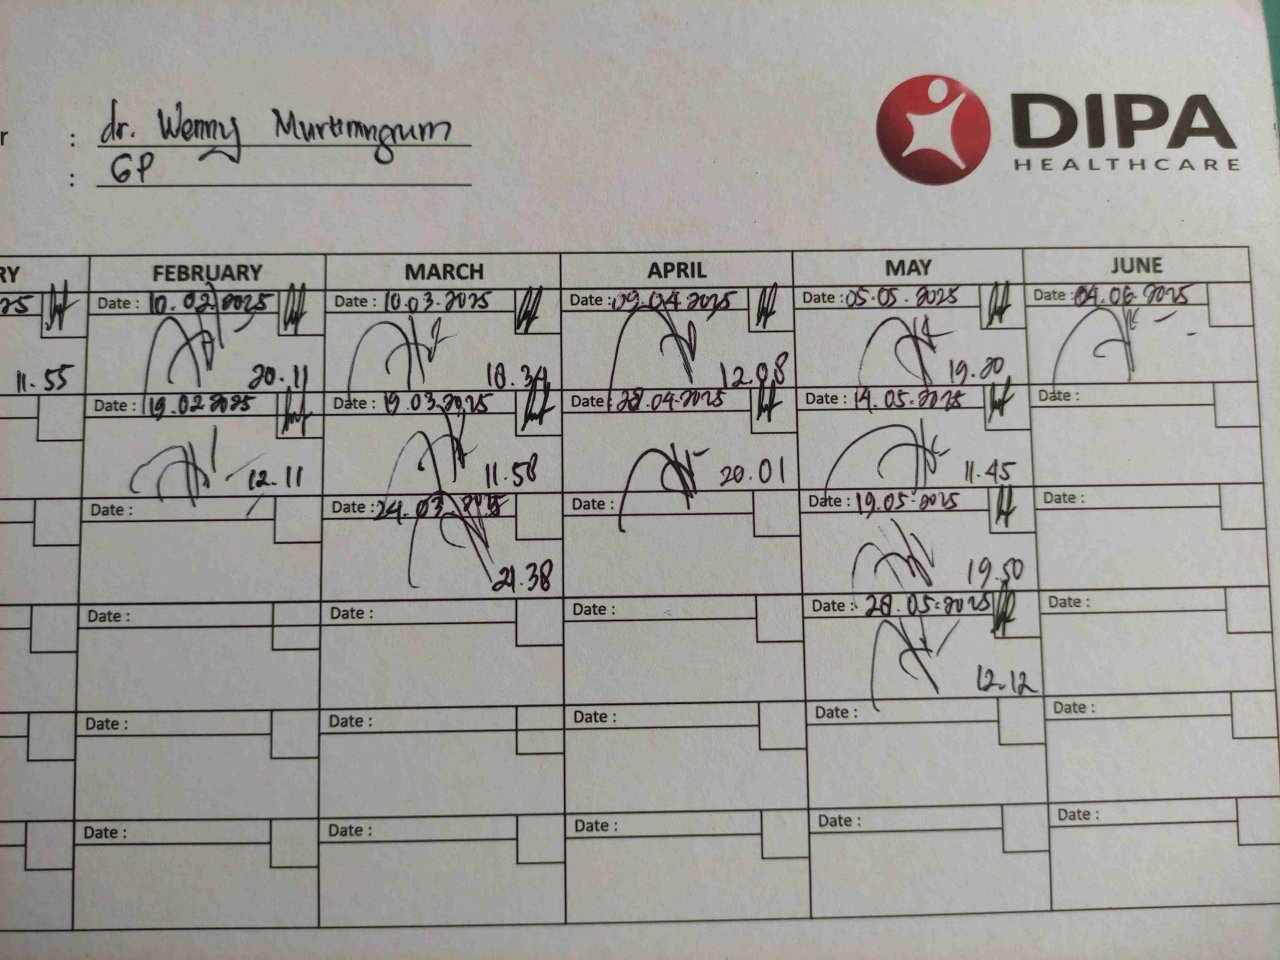 DIPA
HEALTHCARE
r : dr. Wenny Murtiningrum
: GP
RY FEBRUARY MARCH APRIL MAY JUNE
25 Date : 10.02.2025 Date : 10.03.2025 Date : 09.04.2025 Date : 05.05.2025 Date : 04.06.2025
11.55 20.11 18.34 12.08 19.20
Date : 19.02.2025 Date : 19.03.2025 Date : 28.04.2025 Date : 14.05.2025 Date :
12.11 11.58 20.01 11.45
Date : Date : 24.03.2025 Date : Date : 19.05.2025 Date :
21.38 19.50
Date : Date : Date : Date : 28.05.2025 Date :
12.12
Date : Date : Date : Date : Date :
Date : Date : Date : Date : Date :